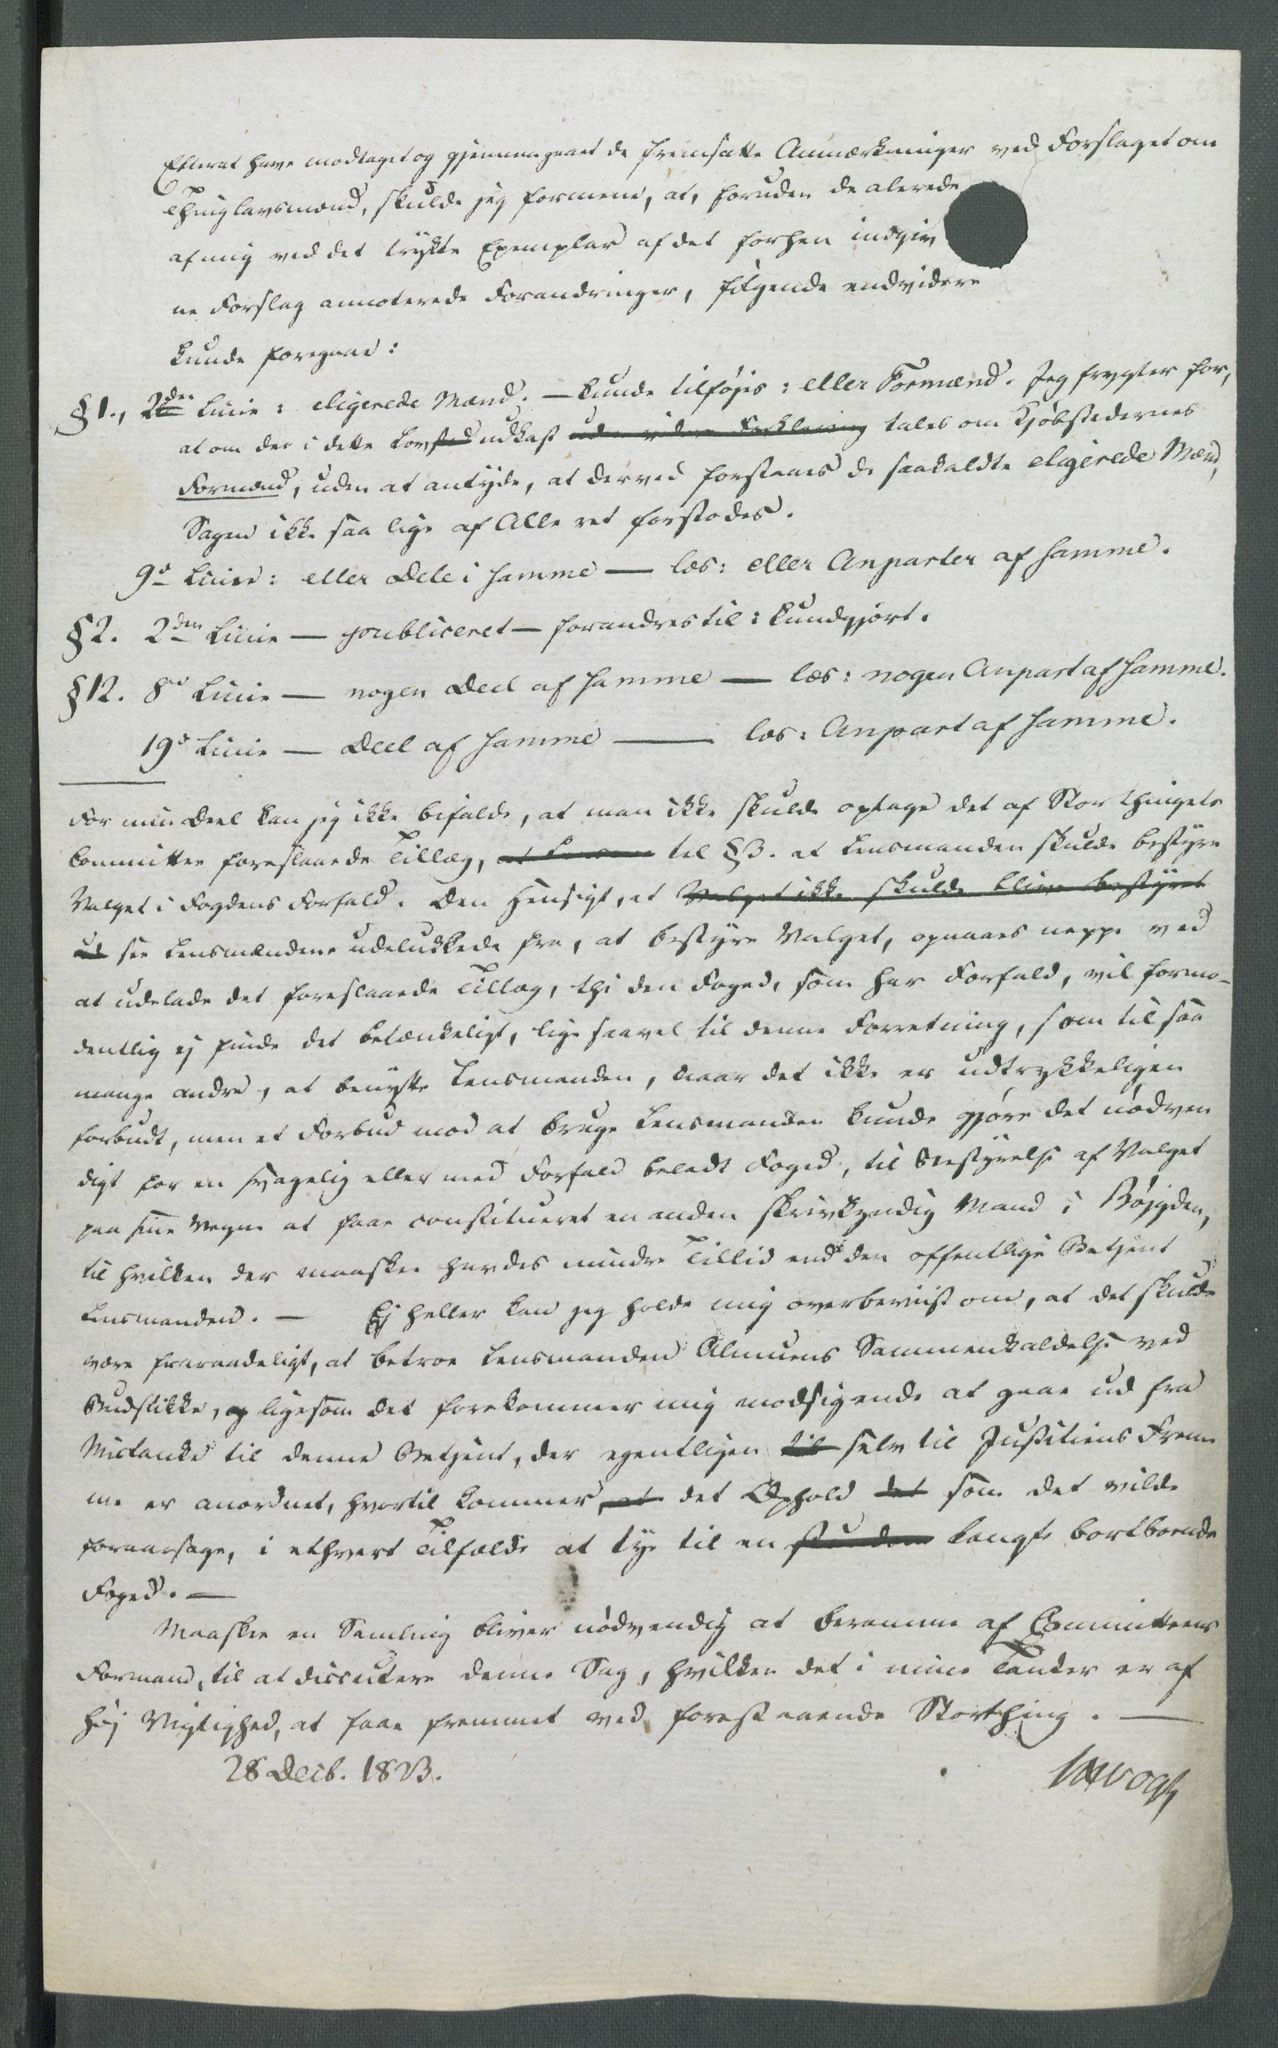 Efterat have modtaget og gjennemgaaet de fremsatte Anmærkninger ved Forslaget om
Thinglavsmænd, skulde jeg formene, at, foruden de alerede
af mig ved det trykte Exemplar af det forhen indgiv
ne Forslag annoterede Forandringer, følgende endvidere
kunde foregaae:
§ 1., 2den Linie: eligerede Mænd. — kunde tilføjes: eller Formænd. Jeg frygter for,
at om der i dette Lovsted udkast uden videre Forklaring tales om Kjøbstædernes
Formænd, uden at antyde, at derved forstaaes de saakaldte eligerede Mænd,
Sagen ikke saa lige af Alle ret forstodes.
9d Linie: eller Dele i samme — læs: eller Anparter af samme.
§ 2. 2den Linie — publiceret — forandres til: kundgjort.
§ 12. 8d Linie — nogen Deel af samme — læs: nogen Anpart af samme.
19d Linie — Deel af samme — læs: Anpart af samme.
For min Deel kan jeg ikke bifalde, at man ikke skulde optage det af Storthingets
Committee foreslaaede Tillæg, til § 3. at Lensmanden skulde bestyre
Valget i Fogdens Forfald. Den Hensigt, at Valget ikke skulde blive bestyret
see Lensmændene udelukkede fra, at bestyre Valget, opnaaes neppe ved
at udelade det foreslaaede Tillæg, thi den Foged, som har Forfald, vil formo-
dentlig ej finde det betænkeligt, lige saavel til denne Forretning, som til saa
mange andre, at benytte Lensmanden, naar det ikke er udtrykkeligen
forbudt, men et Forbud mod at bruge Lensmanden kunde gjøre det nødven
digt for en svagelig eller med Forfald beladt Foged, til Bestyrelse af Valget
paa sine Vegne at faae constitueret en anden skrivkyndig Mand i Bøjgden,
til hvilken der maaskee havdes mindre Tillid end den offentlige Betjent
Lensmanden. — Ej heller kan jeg holde mig overbeviist om, at det skulde
være fraraadeligt, at betroe Lensmanden Almuens Sammenkaldelse ved
Budstikke, og ligesom det forekommer mig modsigende at gaae ud fra
Mistanke til denne Betjent, der egentligen til selv til Justitiens Frem
me er anordnet, hvortil kommer, at det Ophold det som det vilde
foraarsage, i ethvert Tilfælde at tye til en langt bortboende
Foged. —
Maaskee en Samling bliver nødvendig at beramme af Committeens
Formand, til at discutere denne Sag, hvilken det i mine Tanker er af
høj Vigtighed, at faae fremmet ved forestaaende Storthing. —
28 Decb. 1823.
Vogt